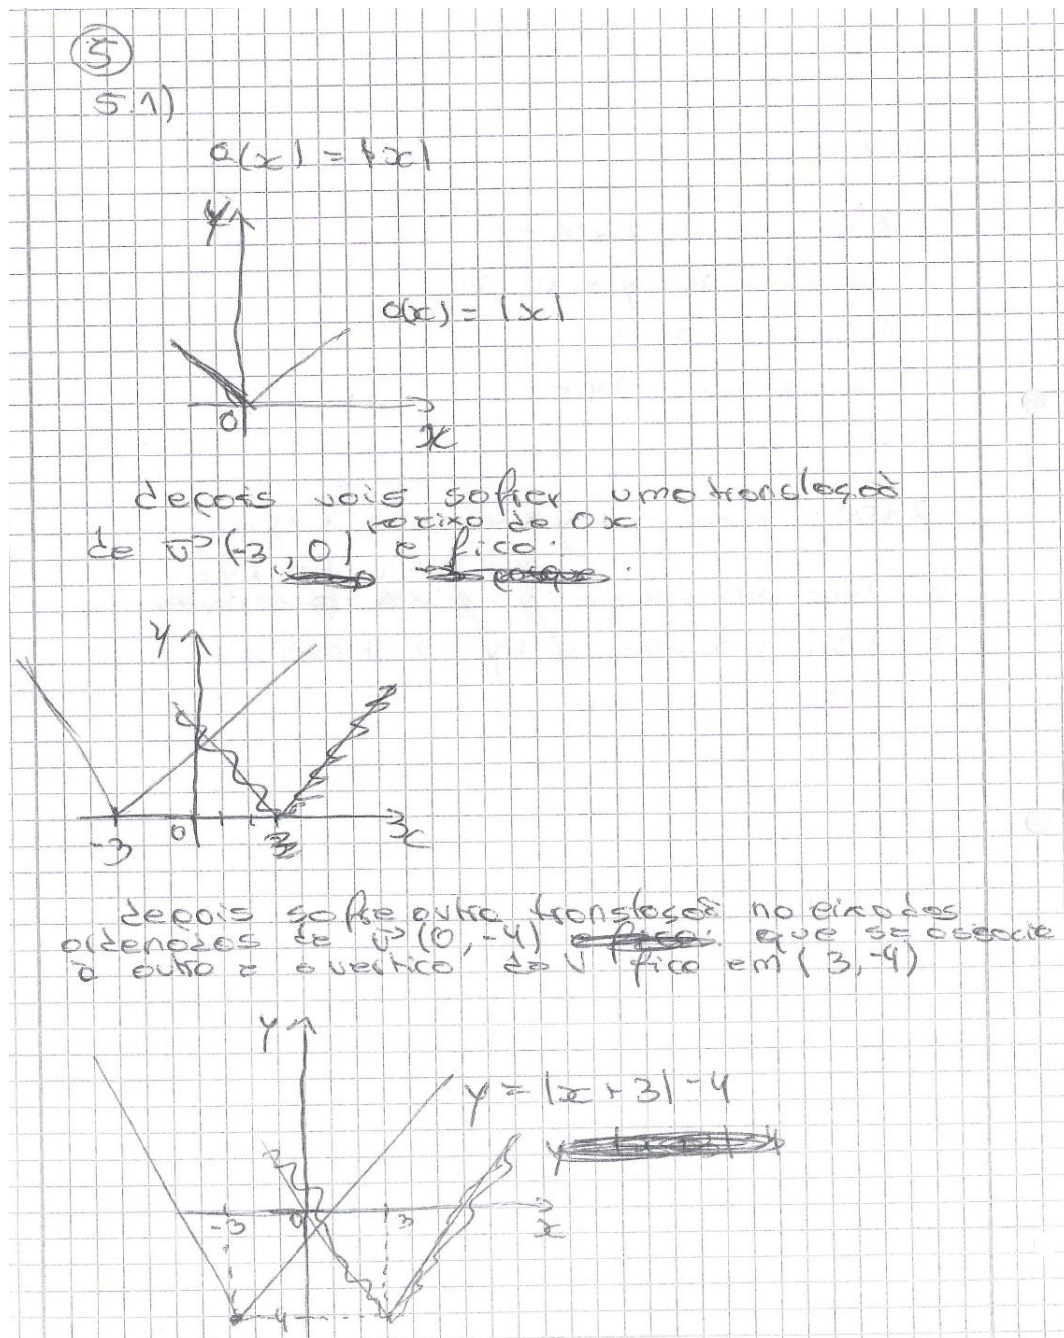 5
5.1)
a(x) = |x|
y
a(x) = |x|
0
x
depois vais sofrer uma translação
no eixo de Ox
de v (-3, 0) e fica:
y
-3 0 3 x
depois sofre outra translação no eixo das
ordenadas de v (0, -4) que se associa
à outra e o vertice do V fica em (3, -4)
y
y = |x + 3| - 4
-3 0 3 x
-4